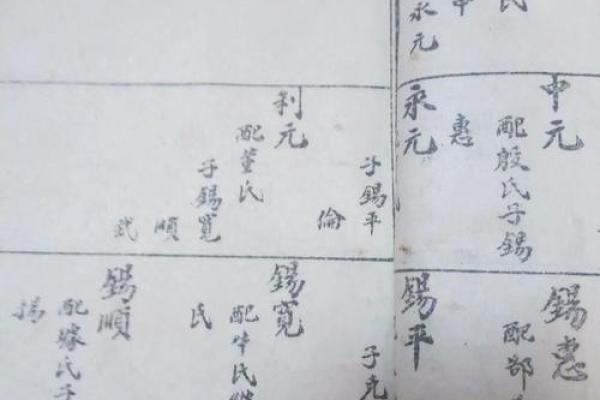 氏
申
永元
中元
配殷氏子錫
惠
永元
子錫平
倫
利元
配董氏
子錫寬
順
武
錫惠
配部
錫平
子克
錫寬
配牛氏繼
氏
錫順
配滕氏子
揚